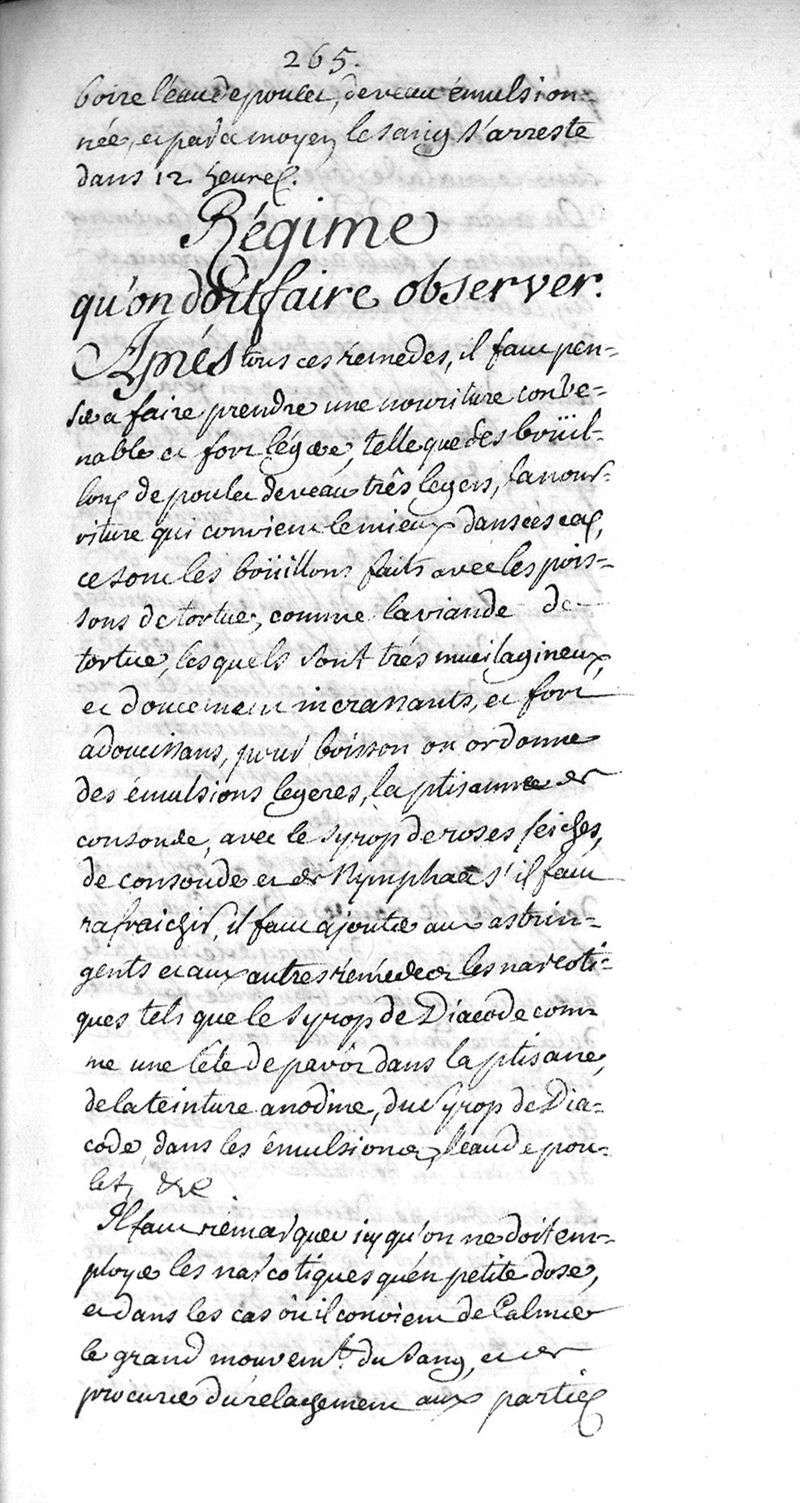 265.
boire l'eau de poulet, de veau émulsion-
née, et par ce moyen le sang s'arreste
dans 12. heures.
Régime
qu'on doit faire observer.
Aprés tous ces remedes, il faut pen-
ser a faire prendre une nouriture conve-
nable et fort légere, telle que des boüil-
lons de poulet de veau trés legers, la nour-
riture qui convient le mieux dans ces cas,
ce sont les boüillons faits avec les pois-
sons de tortue, comme la viande de
tortue, lesquels sont trés mucilagineux,
et doucement incrassants, et fort
adoucissans, pour boisson on ordonne
des émulsions legeres, la ptisanne de
consoude, avec le syrop de roses seiches,
de consoude et de Nymphaea s'il faut
rafraichir, il faut ajouter aux astrin-
gents et aux autres remedes les narcoti-
ques tels que le syrop de Diacode com-
me une tête de pavôt dans la ptisane,
de la teinture anodine, du syrop de Dia-
code, dans les émulsions, l'eau de pou-
let, &c
Il faut rémarquer icy qu'on ne doit em-
ployer les narcotiques qu'en petite dose,
et dans les cas où il convient de Calmer
le grand mouvemt. du sang, et de
procurer du rélachement aux parties